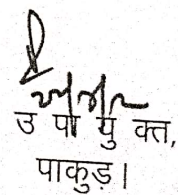 उ पा यु क्त,
पाकुड़।